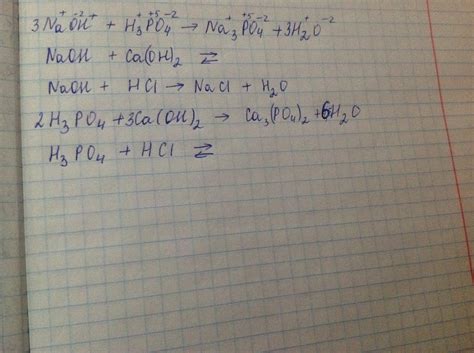 3Na⁺O⁻²H⁺ + H₃⁺P⁺⁵O₄⁻² → Na₃⁺P⁺⁵O₄⁻² + 3H₂⁺O⁻²
NaOH + Ca(OH)₂ ⇄
NaOH + HCl → NaCl + H₂O
2H₃PO₄ + 3Ca(OH)₂ → Ca₃(PO₄)₂ + 6H₂O
H₃PO₄ + HCl ⇄